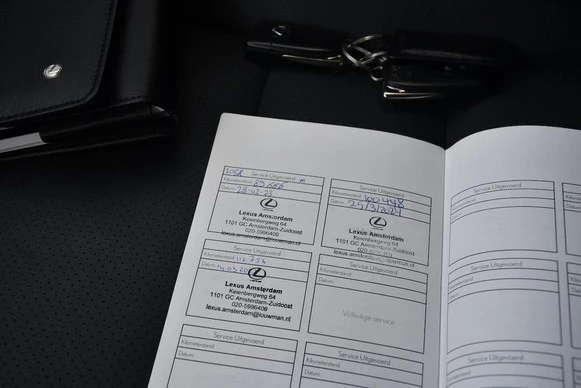 Service Uitgevoerd
Kilometerstand: 89.666
Datum: 28-03-23
Lexus Amsterdam
Keienbergweg 64
1101 GC Amsterdam-Zuidoost
020-5996406
lexus.amsterdam@louwman.nl
Service Uitgevoerd
Kilometerstand: 100448
Datum: 25/3/2024
Lexus Amsterdam
Keienbergweg 64
1101 GC Amsterdam-Zuidoost
lexus.amsterdam@louwman.nl
Service Uitgevoerd
Kilometerstand: 112.754
Datum:
Lexus Amsterdam
Keienbergweg 64
1101 GC Amsterdam-Zuidoost
020-5996406
lexus.amsterdam@louwman.nl
Service Uitgevoerd
Kilometerstand:
Datum:
Volledige service
Service Uitgevoerd
Kilometerstand:
Datum:
Service Uitgevoerd
Kilometerstand:
Datum:
Service Uitgevoerd
Kilometerstand:
Datum:
Service Uitgevoerd
Kilometerstand:
Datum:
Service Uitgevoerd
Kilometerstand: